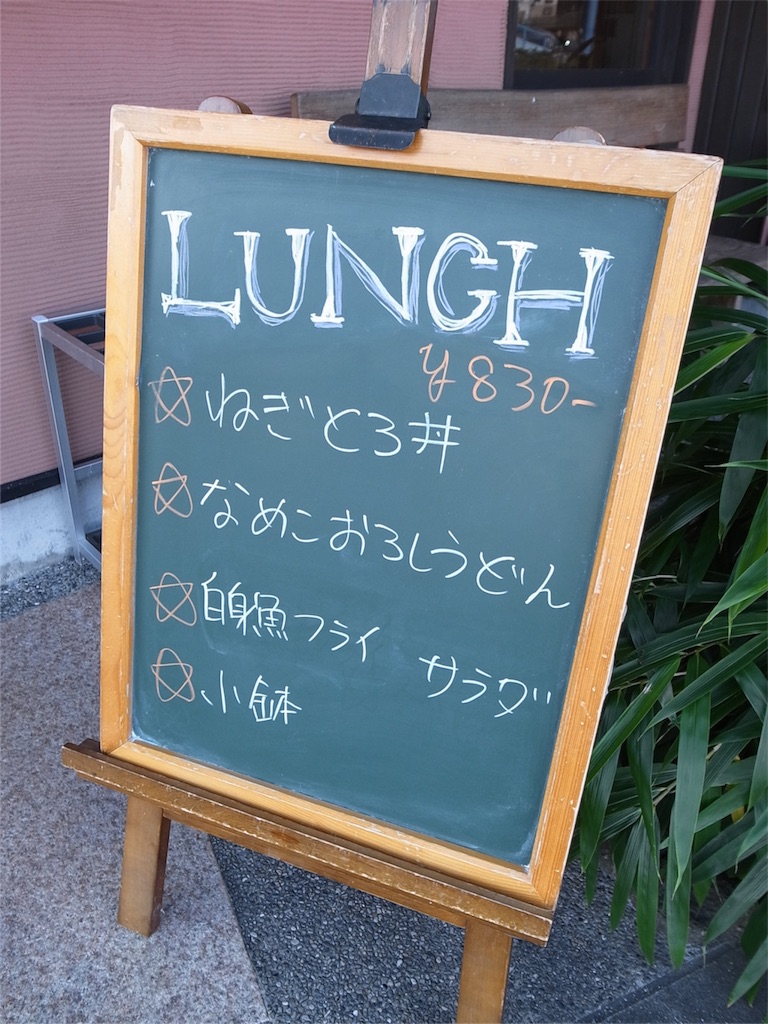 LUNCH
¥830-
☆ ねぎとろ丼
☆ なめこおろしうどん
☆ 白身魚フライ サラダ
☆ 小鉢